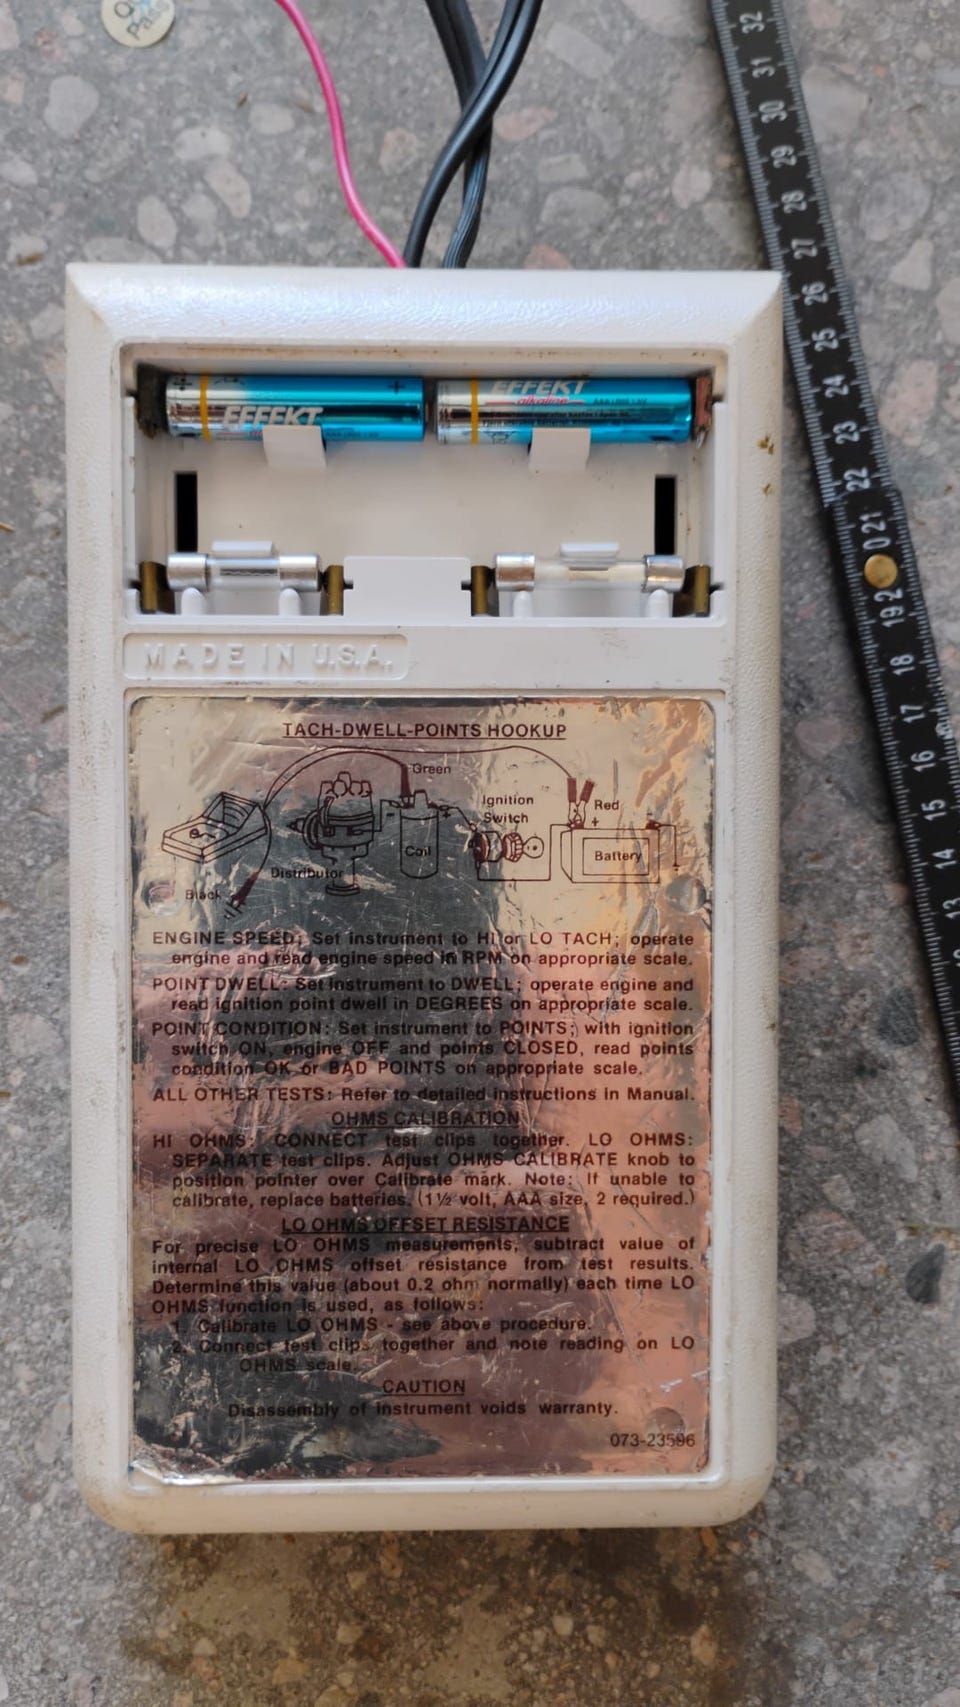 QC
Pass
32
31
30
29
28
27
26
25
24
23
22
021
192
18
17
16
15
14
13
+ EFFEKT +
AAA
EFFEKT
alkaline
MADE IN U.S.A.
TACH-DWELL-POINTS HOOKUP
Green
Ignition
Switch
Red
+
+
Coil
Battery
Distributor
Black
ENGINE SPEED: Set instrument to HI or LO TACH; operate
engine and read engine speed in RPM on appropriate scale.
POINT DWELL: Set instrument to DWELL; operate engine and
read ignition point dwell in DEGREES on appropriate scale.
POINT CONDITION: Set instrument to POINTS; with ignition
switch ON, engine OFF and points CLOSED, read points
condition OK or BAD POINTS on appropriate scale.
ALL OTHER TESTS: Refer to detailed instructions in Manual.
OHMS CALIBRATION
HI OHMS: CONNECT test clips together. LO OHMS:
SEPARATE test clips. Adjust OHMS CALIBRATE knob to
position pointer over Calibrate mark. Note: If unable to
calibrate, replace batteries. (1½ volt, AAA size, 2 required.)
LO OHMS OFFSET RESISTANCE
For precise LO OHMS measurements, subtract value of
internal LO OHMS offset resistance from test results.
Determine this value (about 0.2 ohm normally) each time LO
OHMS function is used, as follows:
1. Calibrate LO OHMS - see above procedure.
2. Connect test clips together and note reading on LO
OHMS scale.
CAUTION
Disassembly of instrument voids warranty.
073-23596